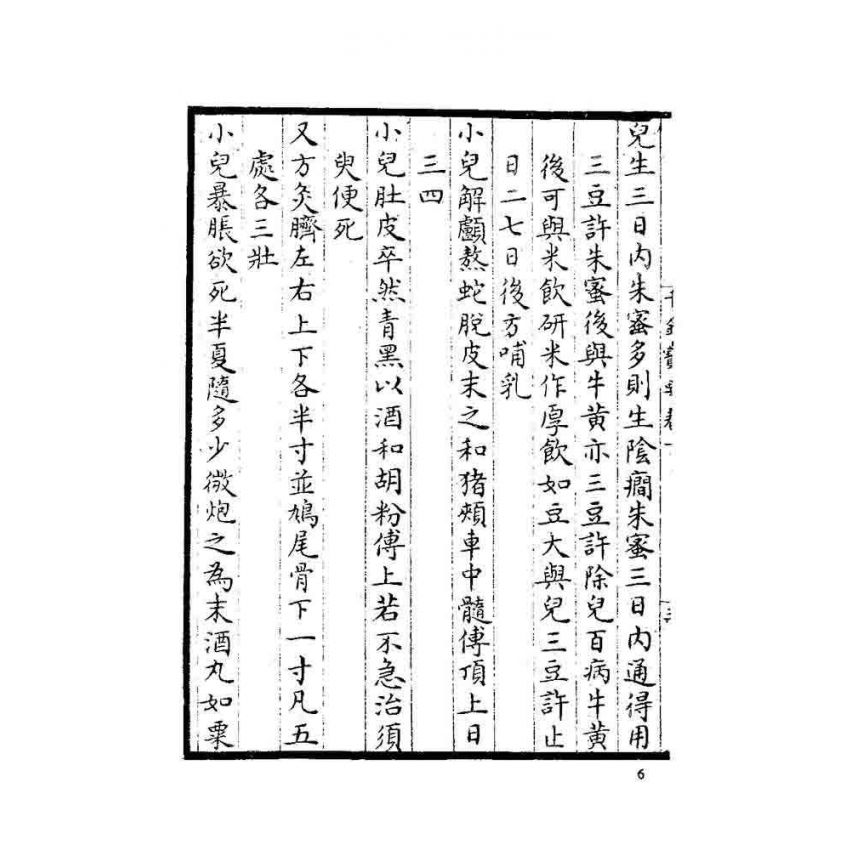 兒生三日内朱蜜多則生陰癇朱蜜三日内通得用
三豆許朱蜜後與牛黄亦三豆許除兒百病牛黄
後可與米飲研米作厚飲如豆大與兒三豆許止
日二七日後方哺乳
小兒解顱熬蛇脫皮末之和猪頰車中髓傅頂上日
三四
小兒肚皮卒然青黑以酒和胡粉傅上若不急治須
臾便死
又方灸臍左右上下各半寸並鳩尾骨下一寸凡五
處各三壯
小兒暴脹欲死半夏隨多少微炮之為末酒丸如粟
6